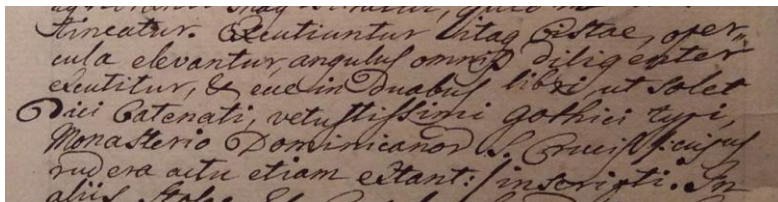 tineatur. Excutiuntur itaq Cistae, oper„
cula elevantur, angulus omnis diligenter
excutitur, & ecce in Duabus libri, ut solet
Dici Catenati, vetustissimi gothici typi,
Monasterio Dominicanor S. Crucis /: cujus
rudera actu etiam extant :/ inscripti. In
aliis